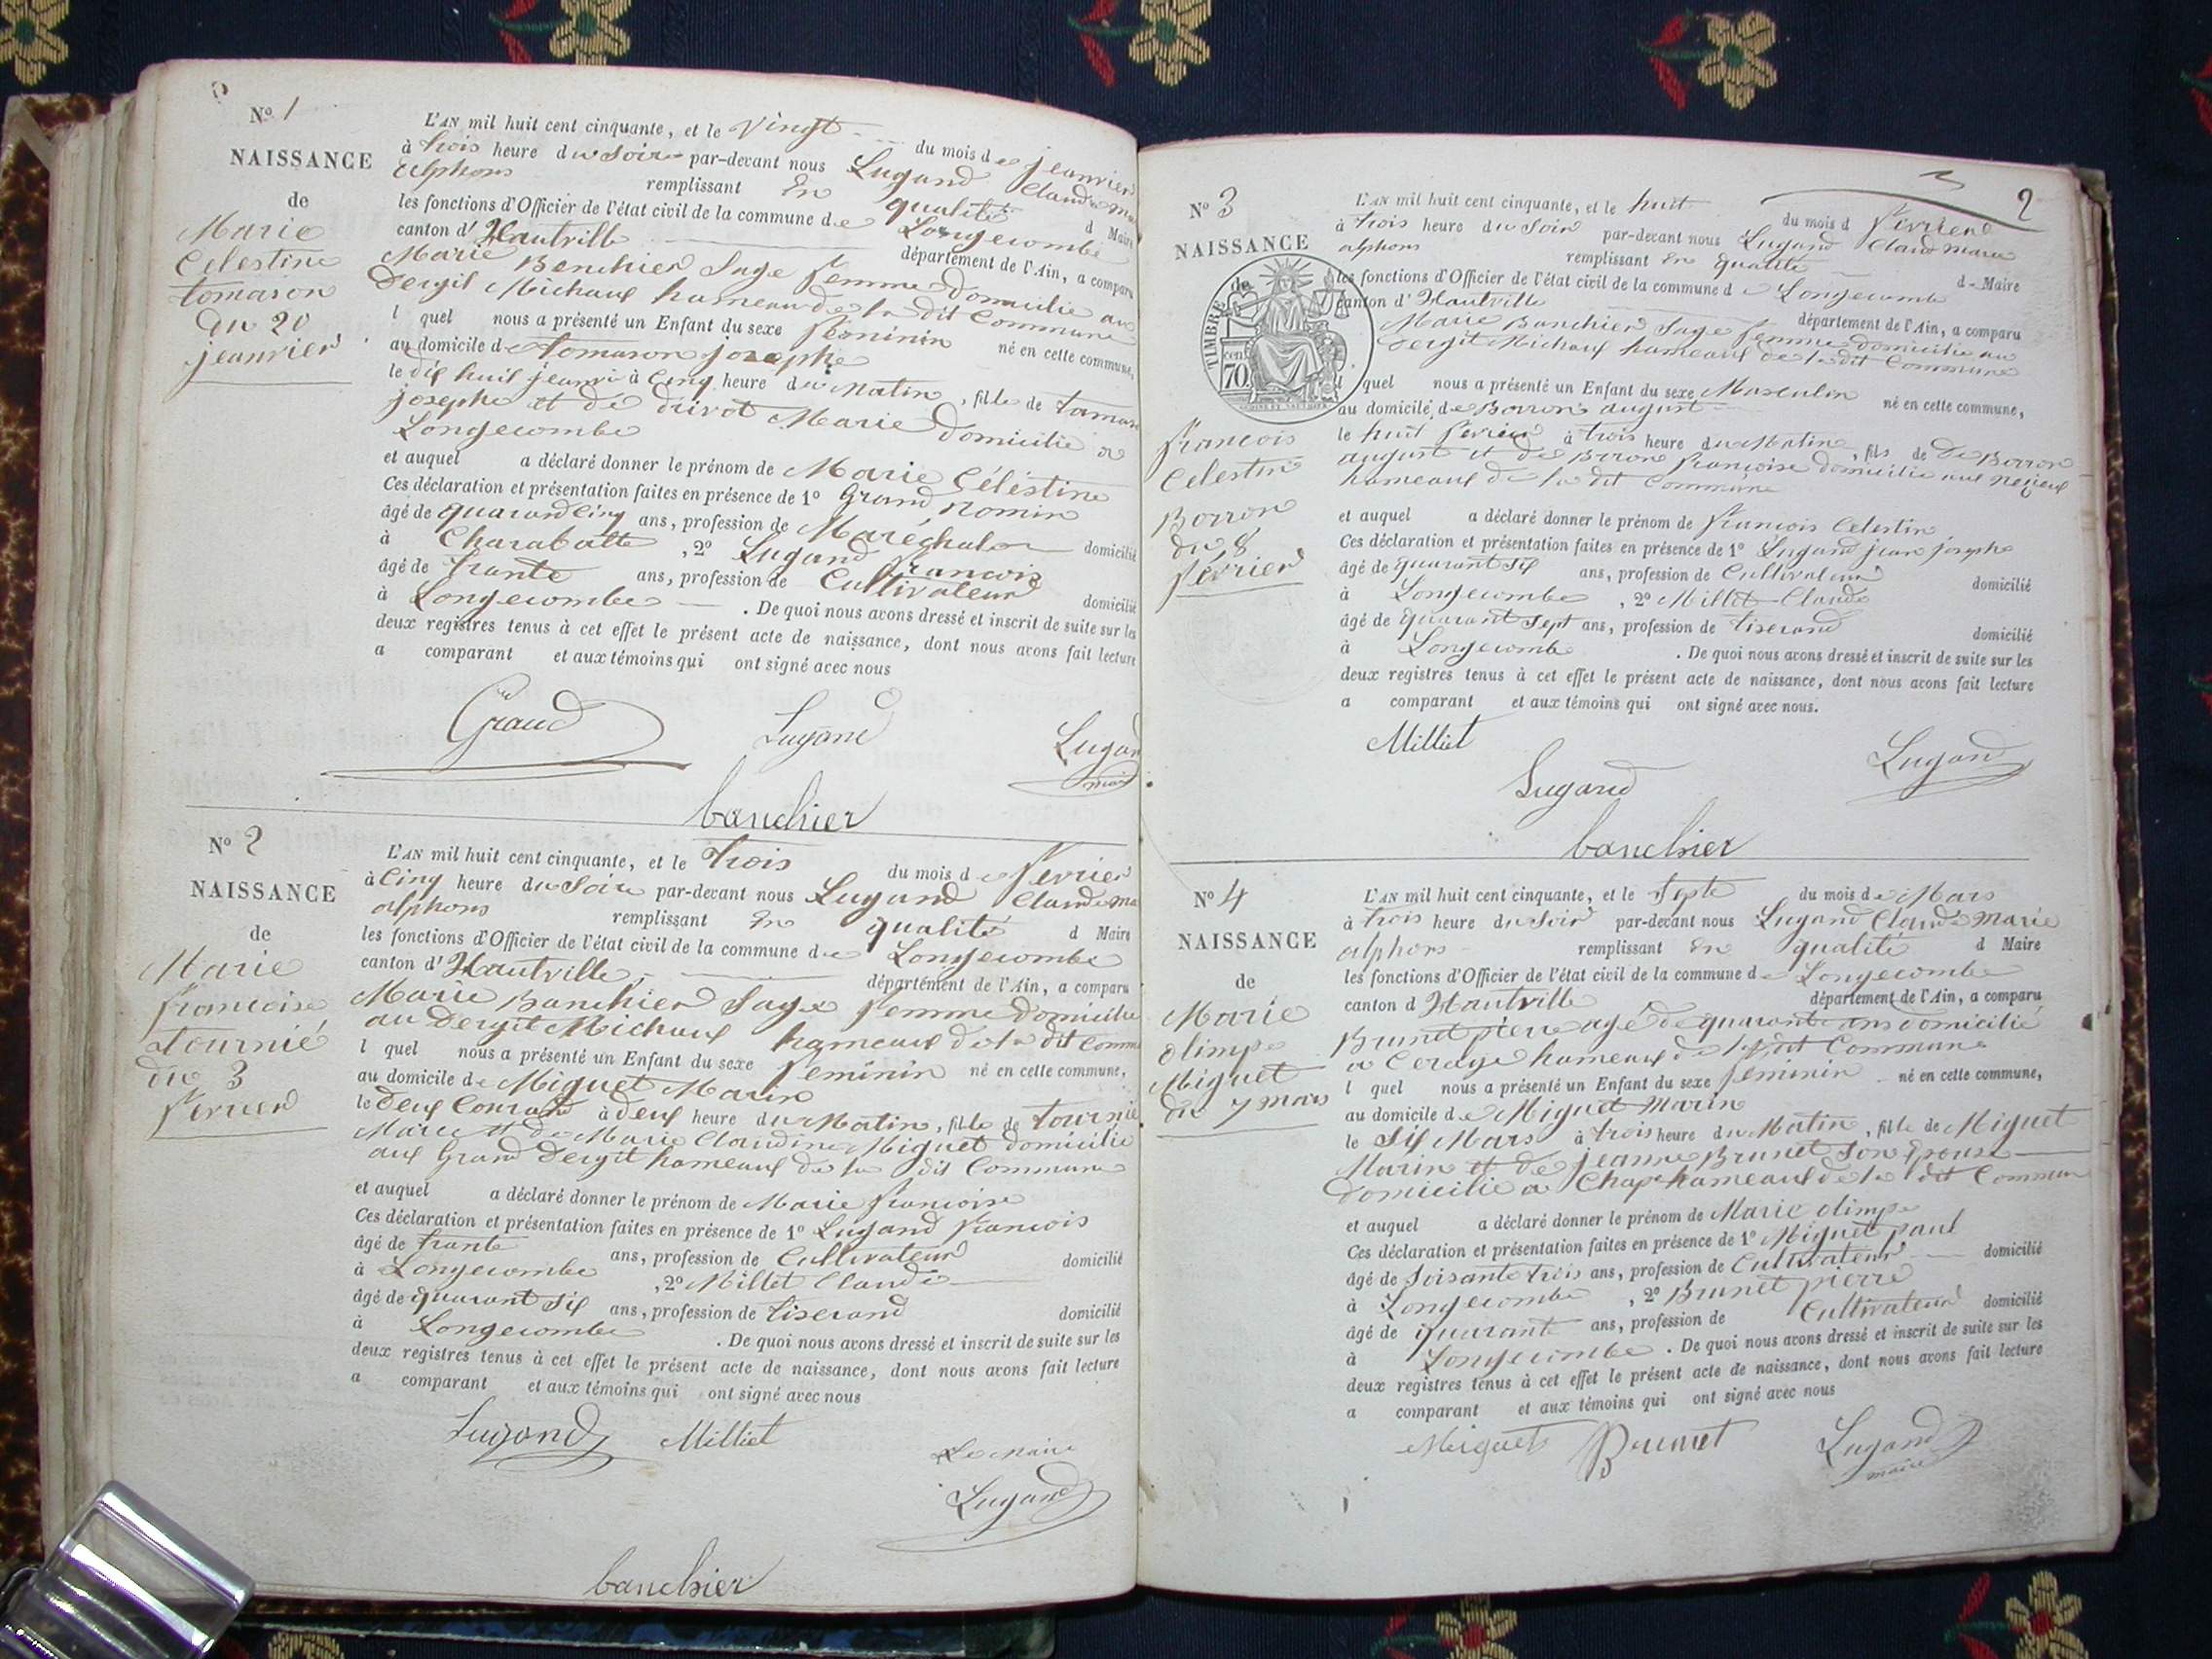 N° 1
NAISSANCE
de
Marie
Celestine
tomason
du 20
jeanvier
L'AN mil huit cent cinquante, et le Vingt du mois de jeanvier
à trois heure du Soir par-devant nous Lugand Claude ma
alphons remplissant En qualité d Maire
les fonctions d'Officier de l'état civil de la commune de Longecombe
canton d' Hautville département de l'Ain, a comparu
Marie Banchier Sage femme Domicilie au
Dergit Michaux hameau de la dit Commune
l quel nous a présenté un Enfant du sexe feminin né en cette commune,
au domicile de tomason josephe
le dix huit jeanvi à Cinq heure du Matin, fille de tomason
josephe et de drivot Marie Domicilie a
Longecombe
et auquel a déclaré donner le prénom de Marie Céléstine
Ces déclaration et présentation faites en présence de 1° Grand Romin
âgé de quarand Cinq ans, profession de Maréchal domicilié
à Charabotte, 2° Lugand francois
âgé de trante ans, profession de Cultivateur domicilié
à Longecombe. De quoi nous avons dressé et inscrit de suite sur les
deux registres tenus à cet effet le présent acte de naissance, dont nous avons fait lecture
a comparant et aux témoins qui ont signé avec nous
Grand Lugand Lugand
maire
banchier
N° 2
NAISSANCE
de
Marie
francoise
tournié
du 3
fevrier
L'AN mil huit cent cinquante, et le trois du mois de fevrier
à Cinq heure du Soir par-devant nous Lugand Claude ma
alphons remplissant En qualité d Maire
les fonctions d'Officier de l'état civil de la commune de Longecombe
canton d' Hautville, département de l'Ain, a comparu
Marie Banchier Sage femme Domicilie
au Dergit Michaux hameaux de la dit Commu
l quel nous a présenté un Enfant du sexe feminin né en cette commune,
au domicile de Miguet Marin
le Deux Courant à deux heure du Matin, fille de tournié
Marie et de Marie Claudine Miguet domicilié
aux Grand Dergit hameaux de la dit Commune
et auquel a déclaré donner le prénom de Marie francoise
Ces déclaration et présentation faites en présence de 1° Lugand francois
âgé de trante ans, profession de Cultivateur domicilié
à Longecombe, 2° Millet Claude
âgé de quarant Six ans, profession de tiserand domicilié
à Longecombe. De quoi nous avons dressé et inscrit de suite sur les
deux registres tenus à cet effet le présent acte de naissance, dont nous avons fait lecture
a comparant et aux témoins qui ont signé avec nous
Lugand Milliet Le maire
Lugand
banchier
2
N° 3
NAISSANCE
de
TIMBRE
70
francois
Celestin
Borron
du 8
fevrier
L'AN mil huit cent cinquante, et le huit du mois d fevrier
à trois heure du Soir par-devant nous Lugand Claud marie
alphons remplissant En qualité d Maire
les fonctions d'Officier de l'état civil de la commune de Longecombe
canton d' Hautville département de l'Ain, a comparu
Marie Banchier Sage femme Domicilie au
Dergit Michaux hameaux de la dit Commune
l quel nous a présenté un Enfant du sexe Masculin né en cette commune,
au domicile de Borron august
le huit fevrier à trois heure du Matin, fils de De Borron
august et de Borron francoise domicilie aux
hameaux de la dit Commune
et auquel a déclaré donner le prénom de francois Celestin
Ces déclaration et présentation faites en présence de 1° Lugand jean josephe
âgé de quarant Six ans, profession de Cultivateur domicilié
à Longecombe, 2° Millet Claude
âgé de quarant Sept ans, profession de tiserand domicilié
à Longecombe. De quoi nous avons dressé et inscrit de suite sur les
deux registres tenus à cet effet le présent acte de naissance, dont nous avons fait lecture
a comparant et aux témoins qui ont signé avec nous.
Milliet Lugand Lugand
banchier
N° 4
NAISSANCE
de
Marie
olimpe
Miguet
du 7 mars
L'AN mil huit cent cinquante, et le Septe du mois de Mars
à trois heure du Soir par-devant nous Lugand Claude Marie
alphons remplissant En qualité d Maire
les fonctions d'Officier de l'état civil de la commune de Longecombe
canton d Hautville département de l'Ain, a comparu
Brunet pierre agé de quarante ans domicilié
a hameaux de la dit Commune
l quel nous a présenté un Enfant du sexe feminin né en cette commune,
au domicile de Miguet Marin
le Six Mars à trois heure du Matin, fille de Miguet
Marin et de jeanne Brunet Son Epouse
Domicilie a Chape hameaux de la dit Commun
et auquel a déclaré donner le prénom de Marie olimpe
Ces déclaration et présentation faites en présence de 1° Miguet paul
âgé de Soisante trois ans, profession de Cultivateur domicilié
à Longecombe, 2° Brunet pierre
âgé de quarante ans, profession de Cultivateur domicilié
à Longecombe. De quoi nous avons dressé et inscrit de suite sur les
deux registres tenus à cet effet le présent acte de naissance, dont nous avons fait lecture
a comparant et aux témoins qui ont signé avec nous
Miguet Brunet Lugand
maire